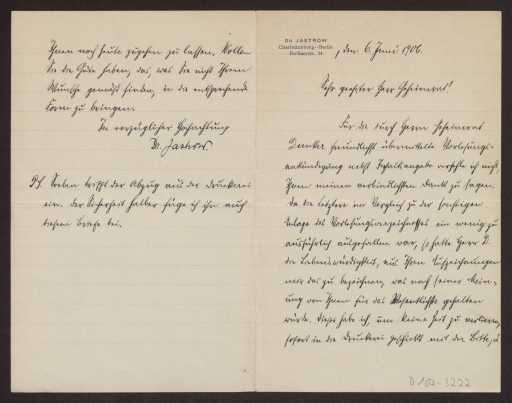 Dr. JASTROW
Charlottenburg-Berlin
Berlinerstr. 54
, den 6. Juni 1906.
Sehr geehrter Herr Geheimrat!
Für die durch Herrn Geheimrat
Denker freundlichst übermittelte Vorlesungs-
ankündigung nebst Inhaltsangabe verfehle ich nicht,
Ihnen meinen verbindlichsten Dank zu sagen.
Da die letztere im Vergleich zu der sonstigen
Anlage des Vorlesungsverzeichnisses ein wenig zu
ausführlich ausgefallen war, so hatte Herr D.
die Liebenswürdigkeit, aus Ihren Aufzeichnungen
mir das zu bezeichnen, was nach seiner Mein-
ung von Ihnen für das Wesentlichste gehalten
würde. Dieses habe ich, um keine Zeit zu verlieren,
sofort in die Druckerei geschickt mit der Bitte, es
Ihnen noch heute zugehen zu lassen. Wollen
Sie die Güte haben, das, was Sie nicht Ihrem
Wunsche gemäß finden, in die entsprechende
Form zu bringen.
In vorzüglicher Hochachtung
Dr. Jastrow
PS. Soeben trifft der Abzug aus der Druckerei
ein. Der Sicherheit halber füge ich ihn auch
diesem Briefe bei.